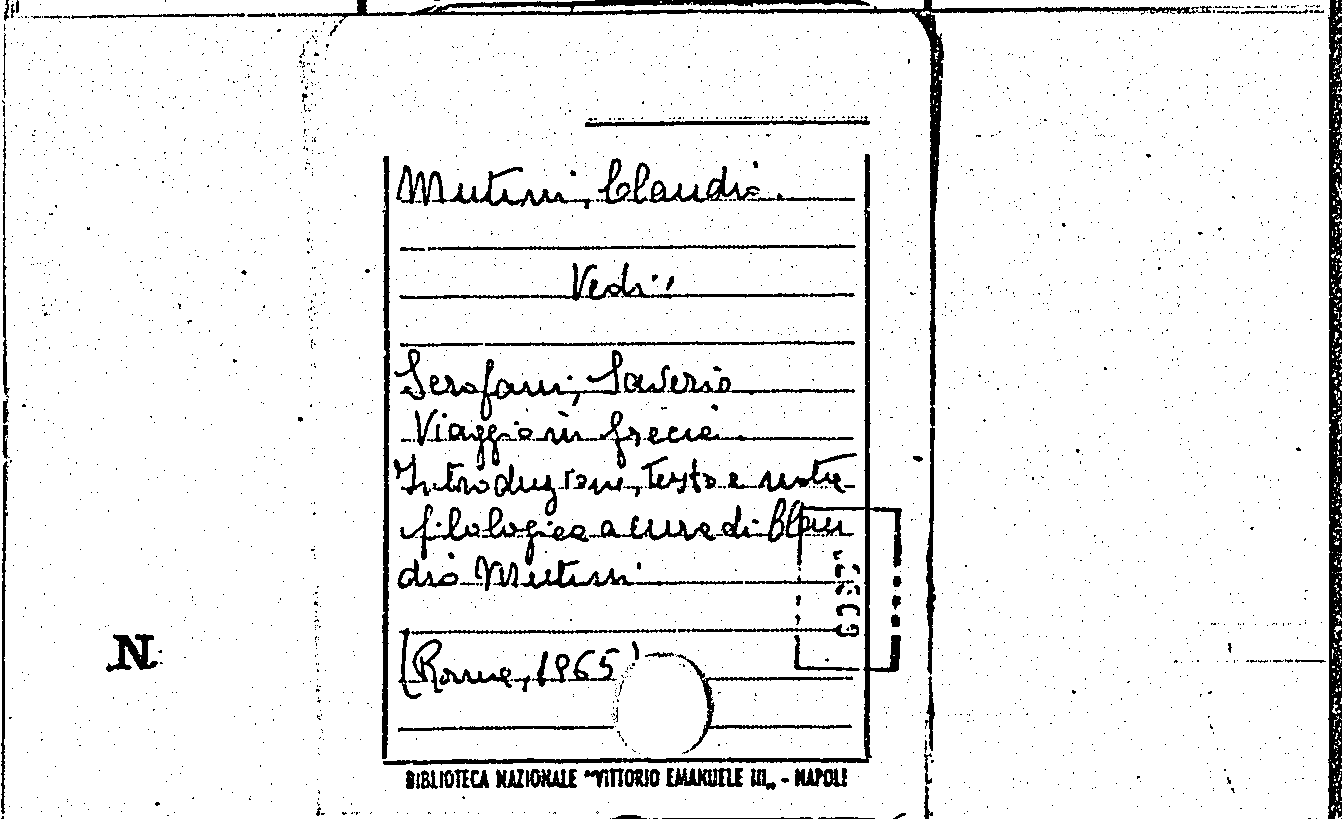 Mutini, Claudio.
Vedi:
Scrofani, Saverio
Viaggio in Grecia.
Introduzione, testo e nota
filologica a cura di Clau
dio Mutini.
(Roma, 1965)
N
BIBLIOTECA NAZIONALE "VITTORIO EMANUELE III" - NAPOLI